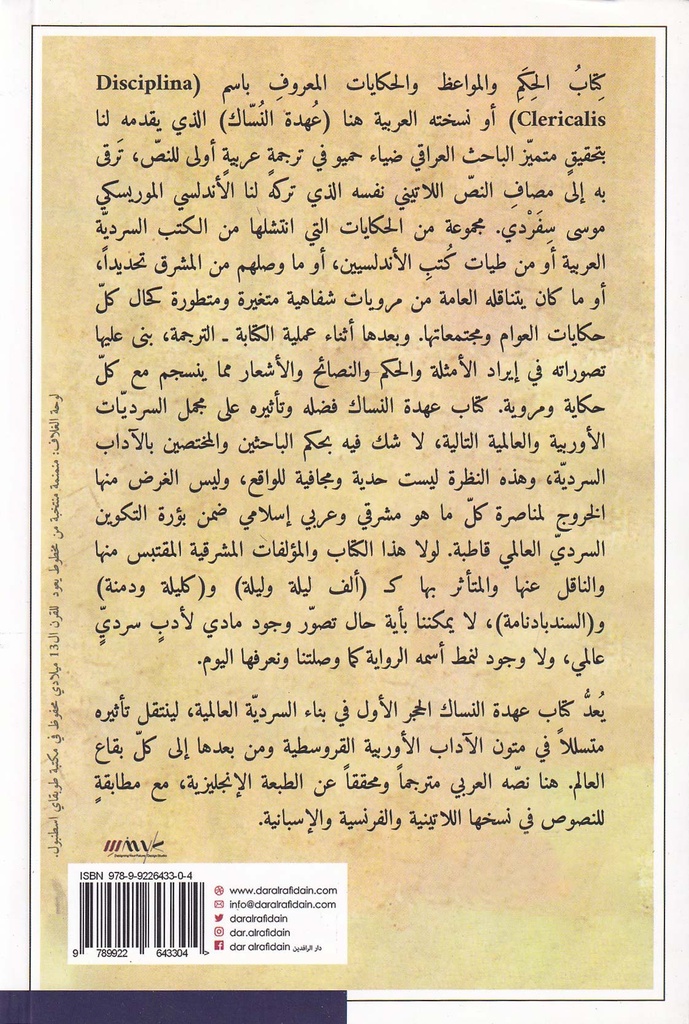 كِتابُ الحِكَمِ والمواعظ والحكايات المعروفِ باسم (Disciplina
Clericalis) أو نسخته العربية هنا (عُهدة النُسّاك) الذي يقدمه لنا
بتحقيقٍ متميّز الباحث العراقي ضياء حميو في ترجمةٍ عربيةٍ أولى للنصّ، تَرقى
به إلى مصافِ النصّ اللاتيني نفسه الذي تركهُ لنا الأندلسي الموريسكي
موسى سِفَرْدي. مجموعة من الحكايات التي انتشلها من الكتب السرديّة
العربية أو من طيات كُتبِ الأندلسيين، أو ما وصلهم من المشرق تحديداً،
أو ما كان يتناقله العامة من مرويات شفاهية متغيرة ومتطورة كحال كلّ
حكايات العوام ومجتمعاتها. وبعدها أثناء عملية الكتابة ـ الترجمة، بنى عليها
تصوراته في إيراد الأمثلة والحكم والنصائح والأشعار مما ينسجم مع كلّ
حكاية ومروية. كتاب عهدة النساك فضله وتأثيره على مجمل السرديّات
الأوربية والعالمية التالية، لا شك فيه بحكم الباحثين والمختصين بالآداب
السرديّة، وهذه النظرة ليست حدية ومجافية للواقع، وليس الغرض منها
الخروج لمناصرة كلّ ما هو مشرقي وعربي إسلامي ضمن بؤرة التكوين
السرديّ العالمي قاطبة. لولا هذا الكتاب والمؤلفات المشرقية المقتبس منها
والناقل عنها والمتأثر بها كـ (ألف ليلة وليلة) و(كليلة ودمنة)
و(السندبادنامة)، لا يمكننا بأية حال تصوّر وجود مادي لأدبٍ سرديٍّ
عالمي، ولا وجود لنمط أسمه الرواية كما وصلتنا ونعرفها اليوم.
يُعدُّ كتاب عهدة النساك الحجر الأول في بناء السرديّة العالمية، لينتقل تأثيره
متسللاً في متون الآداب الأوربية القروسطية ومن بعدها إلى كلّ بقاع
العالم. هنا نصّه العربي مترجماً ومحققاً عن الطبعة الإنجليزية، مع مطابقةٍ
للنصوص في نسخها اللاتينية والفرنسية والإسبانية.
لوحة الغلاف: منمنمة منتخبة من مخطوط يعود للقرن الـ13 ميلادي محفوظ في مكتبة طوبقاي اسطنبول.
ISBN 978-9-9226433-0-4
9 789922 643304 >
www.daralrafidain.com
info@daralrafidain.com
daralrafidain
dar.alrafidain
dar alrafidain دار الرافدين